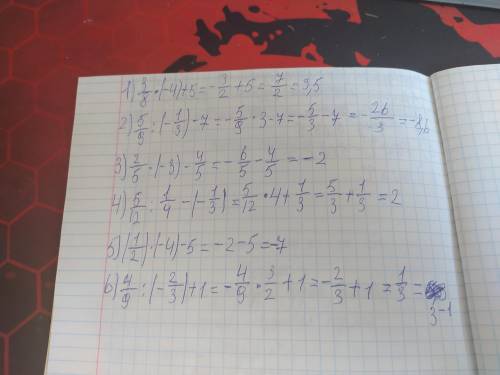 1) 3/8 · (-4) + 5 = -3/2 + 5 = 7/2 = 3,5
2) 5/9 : (-1/3) - 7 = -5/9 · 3 - 7 = -5/3 - 7 = -26/3 = -8,6
3) 2/5 · (-3) - 4/5 = -6/5 - 4/5 = -2
4) 5/12 : 1/4 - (-1/3) = 5/12 · 4 + 1/3 = 5/3 + 1/3 = 2
5) (1/2) · (-4) - 5 = -2 - 5 = -7
6) 4/9 : (-2/3) + 1 = -4/9 · 3/2 + 1 = -2/3 + 1 = 1/3 =
3-1